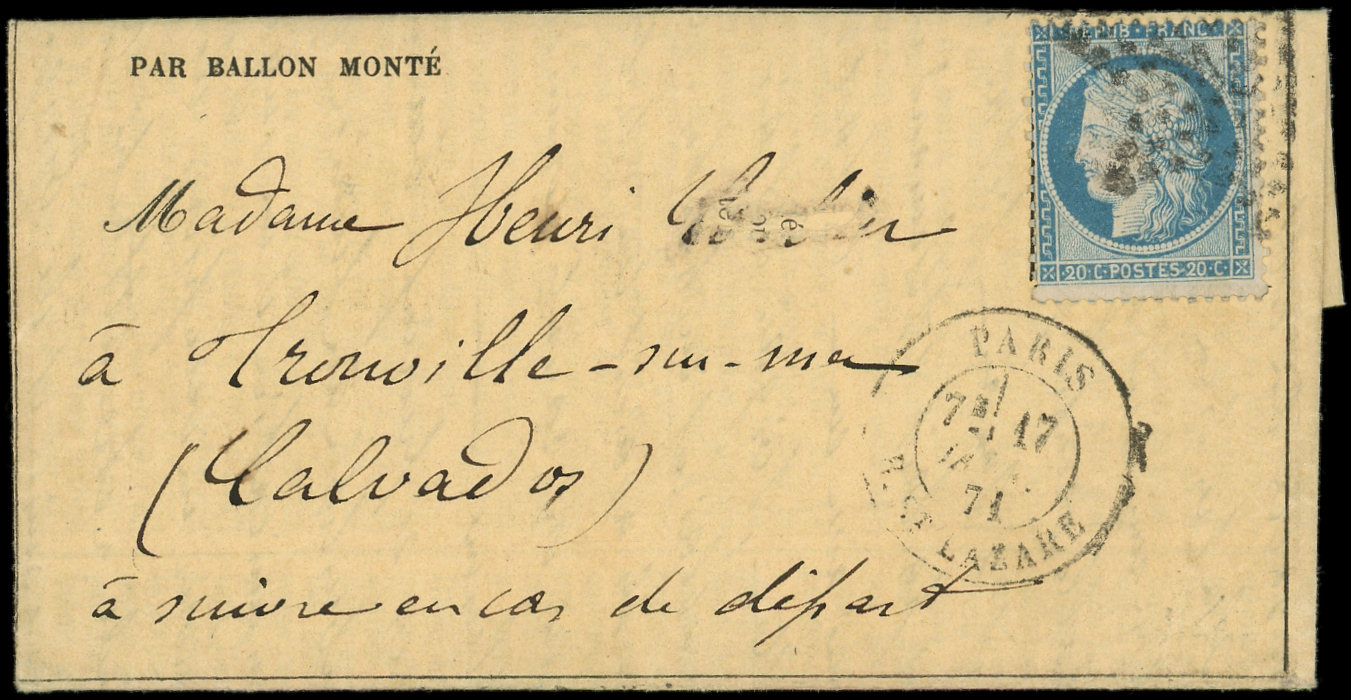 PAR BALLON MONTÉ
Madame Henri
à Trouville-sur-mer
(Calvados)
à suivre en cas de départ
RÉPUB. FRANC
20·C·POSTES·20·C·
PARIS
17
71
R. ST LAZARE